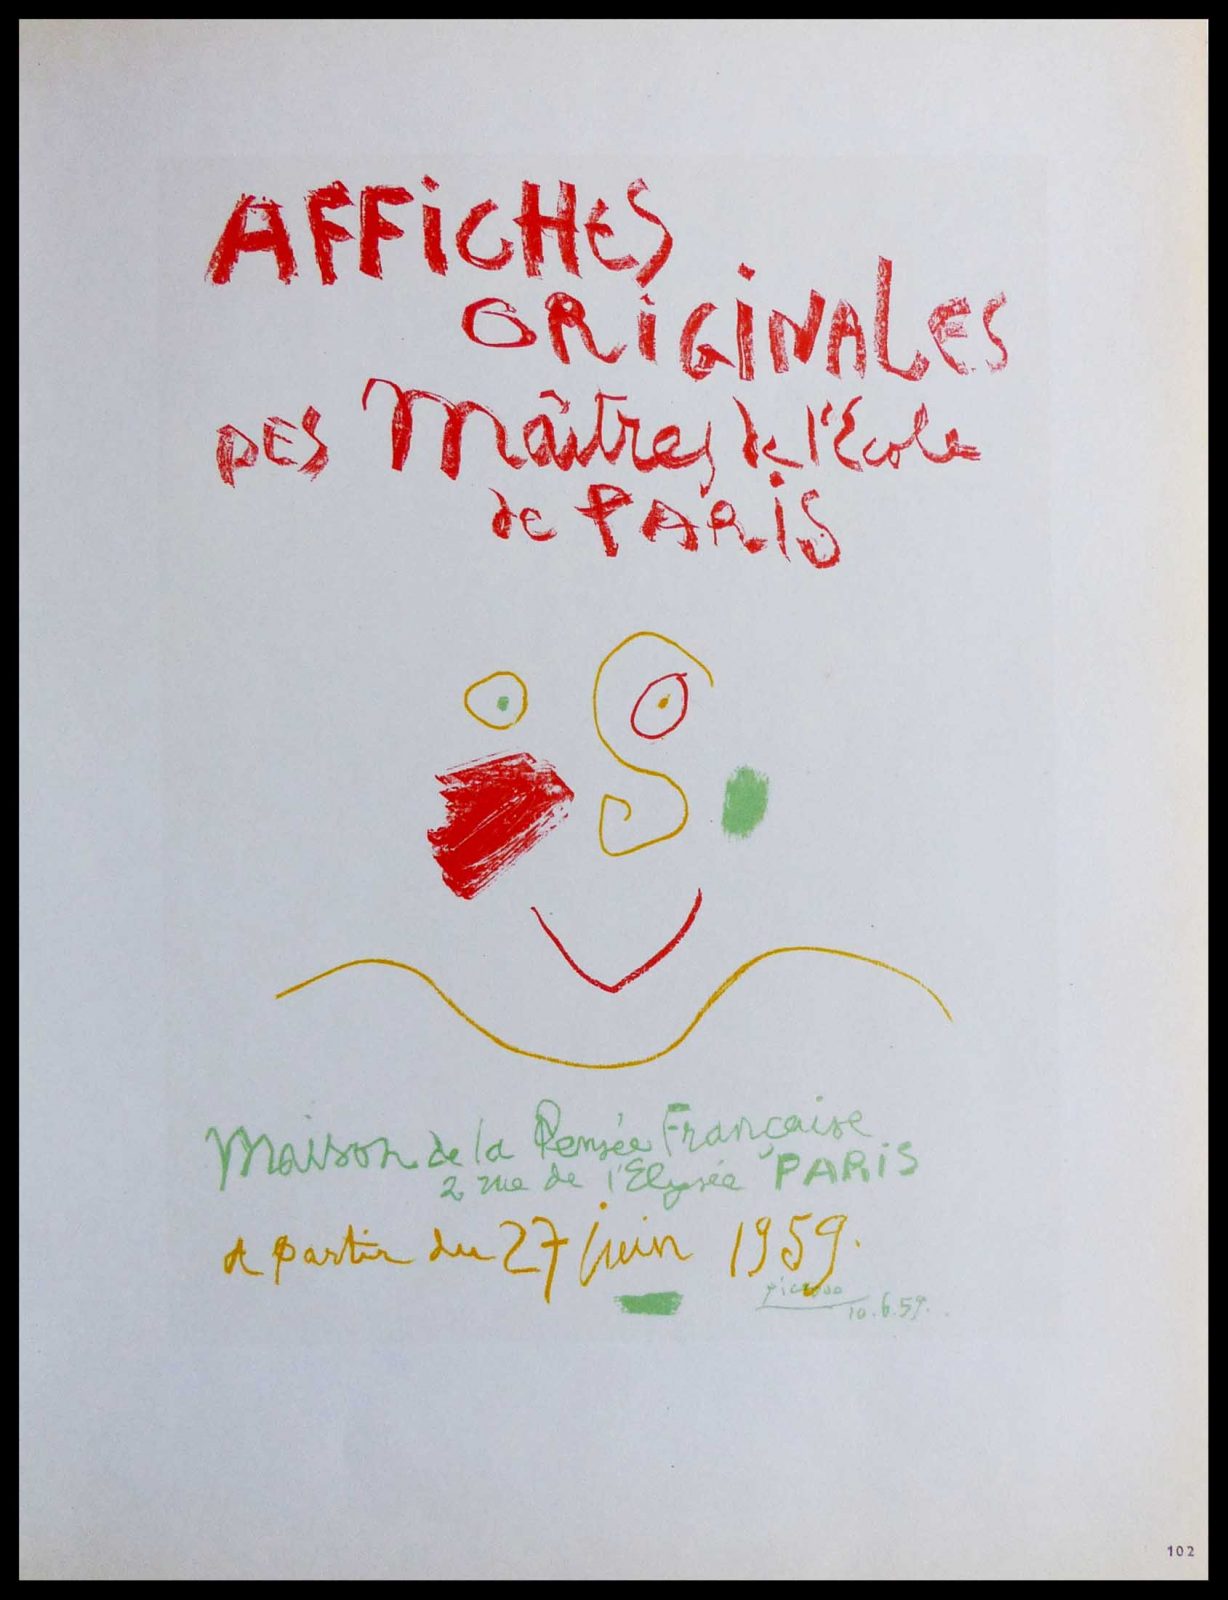 AFFiCHES
ORiGiNALES
DES Maîtres de l'Ecole
de PARiS
Maison de la Pensée Française
2 rue de l'Elysée PARiS
a partir du 27 juin 1959.
picasso
10.6.59.
102